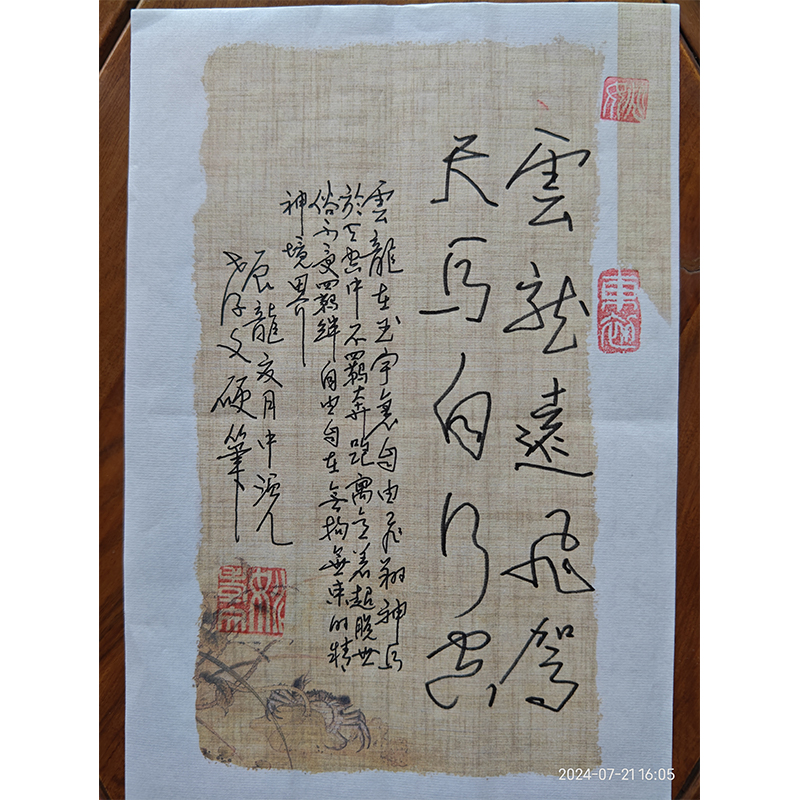 雲龍遠飛駕
天马自行空
雲龍在玉宇裏自由飛翔神马
於天空中不羈奔跑寓意着超脱世
俗不受羈絆自由自在無拘無束的精
神境界
辰龍夏月中浣
文硬筆
2024-07-21 16:05